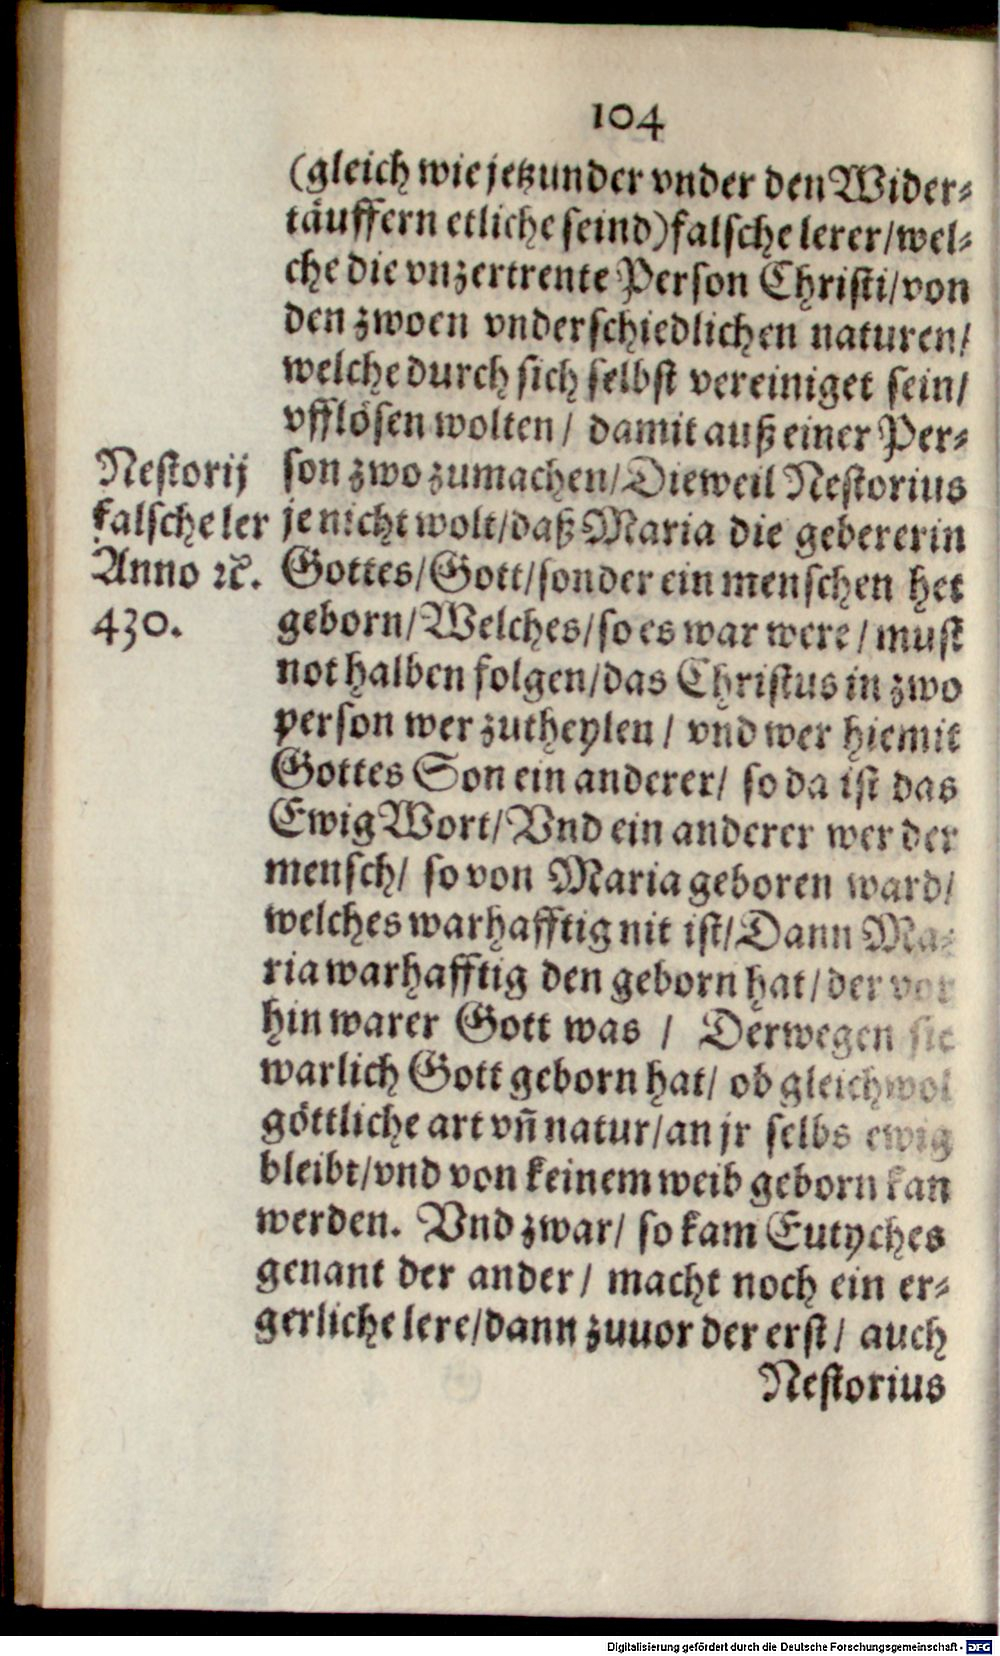 104
(gleich wie jetzunder vnder den Wider⸗
täuffern etliche seind) falsche lerer/ wel⸗
che die vnzertrente Person Christi/ von
den zwoen vnderschiedlichen naturen/
welche durch sich selbst vereiniget sein/
vfflösen wolten/ damit auß einer Per⸗
son zwo zumachen/ Dieweil Nestorius
je nicht wolt/ daß Maria die gebererin
Gottes/ Gott/ sonder ein menschen het
geborn/ Welches/ so es war were/ must
not halben folgen/ das Christus in zwo
person wer zutheylen/ vnd wer hiemit
Gottes Son ein anderer/ so da ist das
Ewig Wort/ Vnd ein anderer wer der
mensch/ so von Maria geboren ward/
welches warhafftig nit ist/ Dann Ma⸗
ria warhafftig den geborn hat/ der vor
hin warer Gott was / Derwegen sie
warlich Gott geborn hat/ ob gleichwol
göttliche art vñ natur/ an jr selbs ewig
bleibt/ vnd von keinem weib geborn kan
werden. Vnd zwar/ so kam Eutyches
genant der ander/ macht noch ein er⸗
gerliche lere/ dann zuuor der erst/ auch
Nestorius
Nestorij
falsche ler
Anno ꝛc.
430.
Digitalisierung gefördert durch die Deutsche Forschungsgemeinschaft - DFG